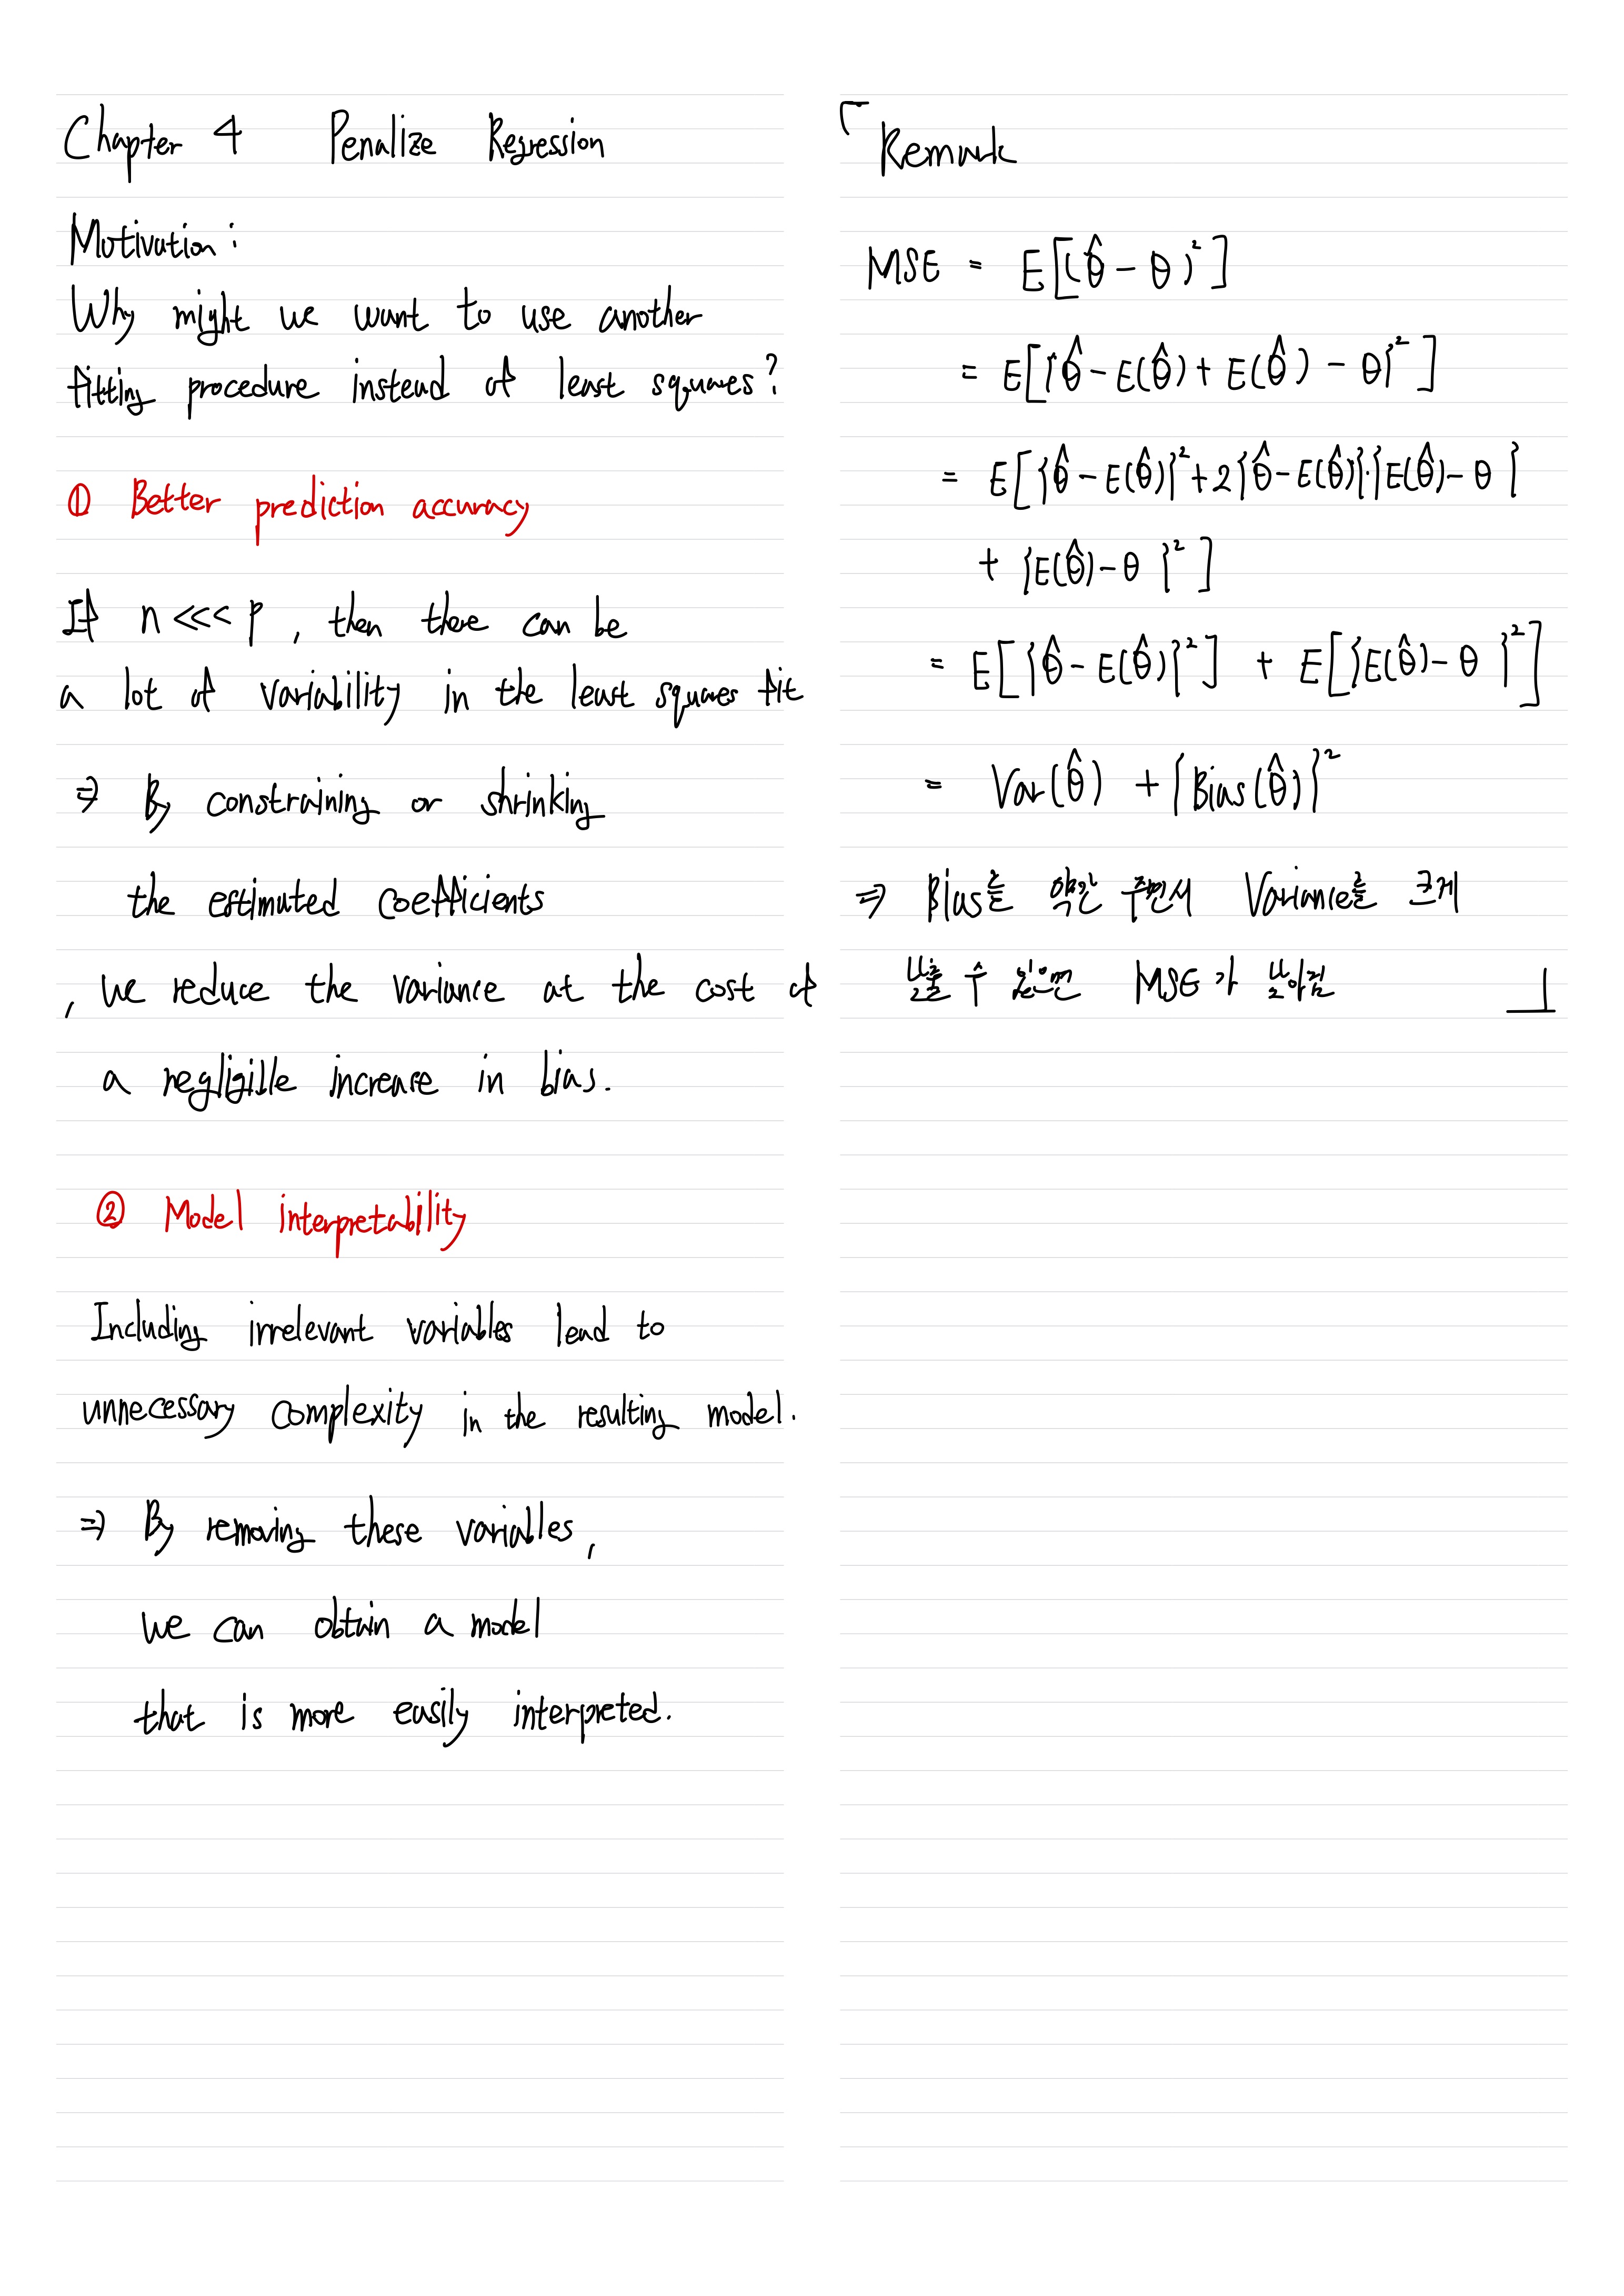 Chapter 4 Penalize Regression
Motivation:
Why might we want to use another
fitting procedure instead of least squares?
① Better prediction accuracy
If n <<< p, then there can be
a lot of variability in the least squares fit
⇒ By constraining or shrinking
the estimated coefficients
, we reduce the variance at the cost of
a negligible increase in bias.
② Model interpretability
Including irrelevant variables lead to
unnecessary complexity in the resulting model.
⇒ By removing these variables,
we can obtain a model
that is more easily interpreted.
Remark
MSE = E[(θ̂ - θ)²]
= E[{θ̂ - E(θ̂) + E(θ̂) - θ}²]
= E[{θ̂ - E(θ̂)}² + 2{θ̂ - E(θ̂)}·{E(θ̂) - θ}
+ {E(θ̂) - θ}²]
= E[{θ̂ - E(θ̂)}²] + E[{E(θ̂) - θ}²]
= Var(θ̂) + {Bias(θ̂)}²
⇒ Bias를 약간 주면서 Variance를 크게
낮출 수 있으면 MSE가 낮아짐